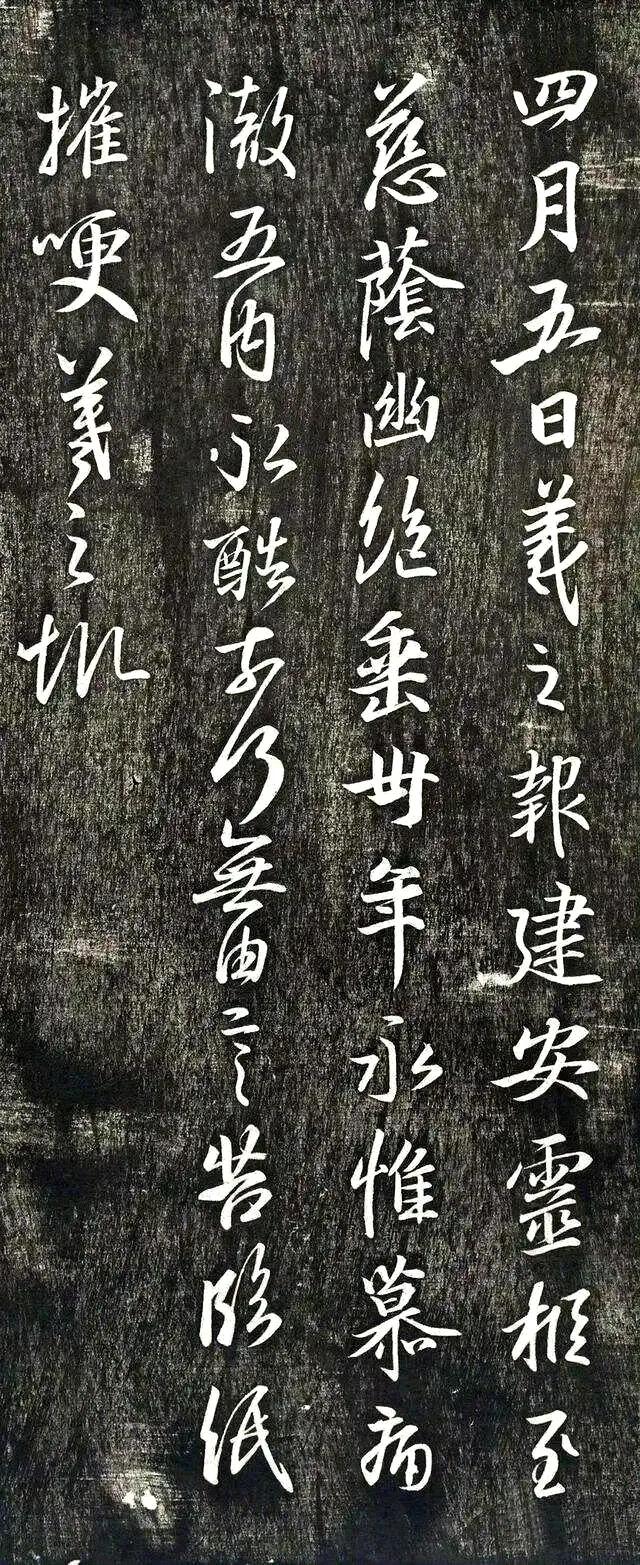 四月五日羲之報建安靈柩至
慈蔭幽絕垂卅年永惟慕痛
徹五內永酷奈何無由言告臨紙
摧哽羲之